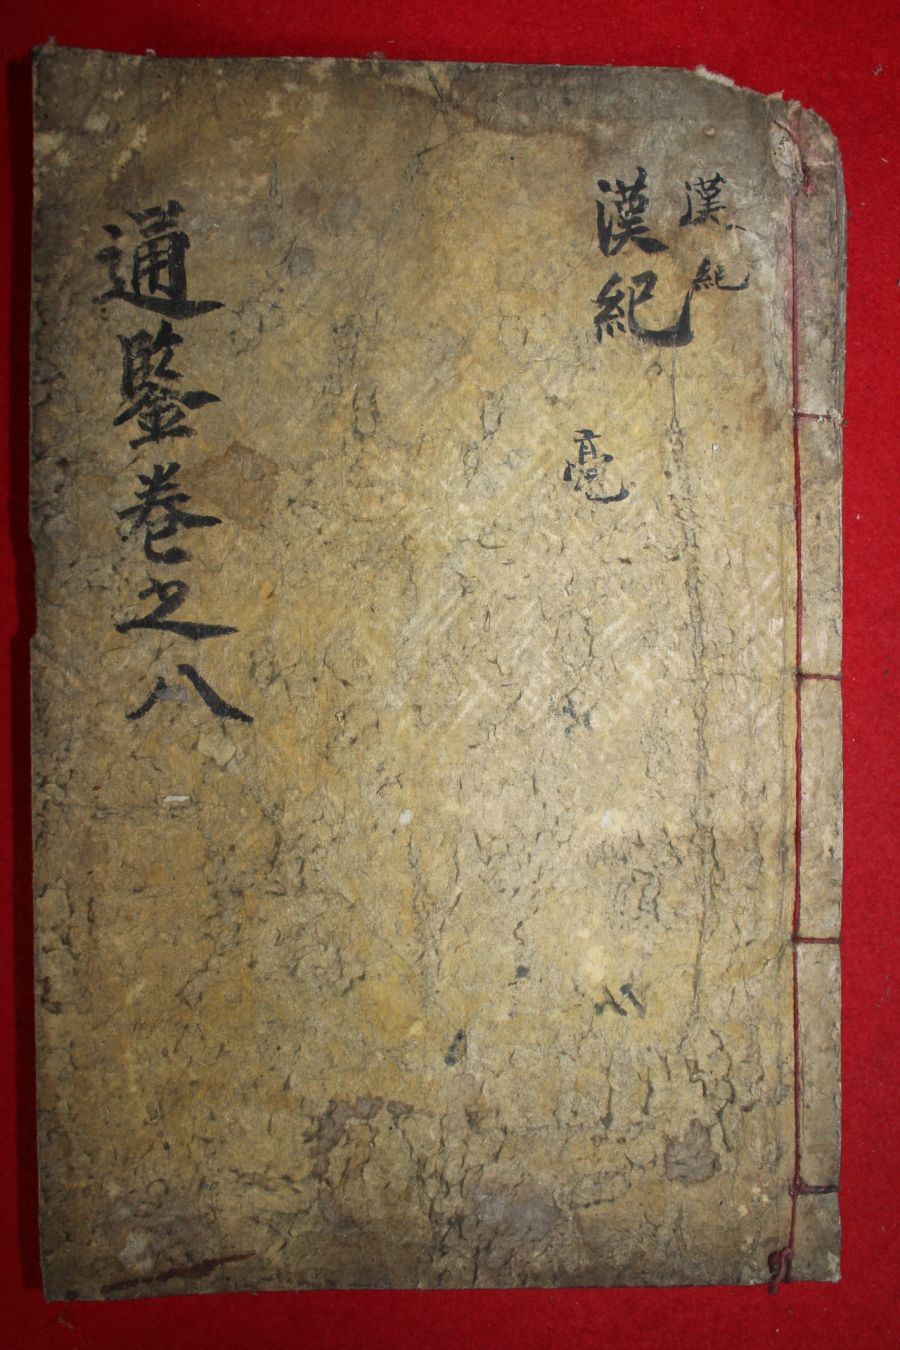 漢紀
漢紀
亳
八
通鑒卷之八